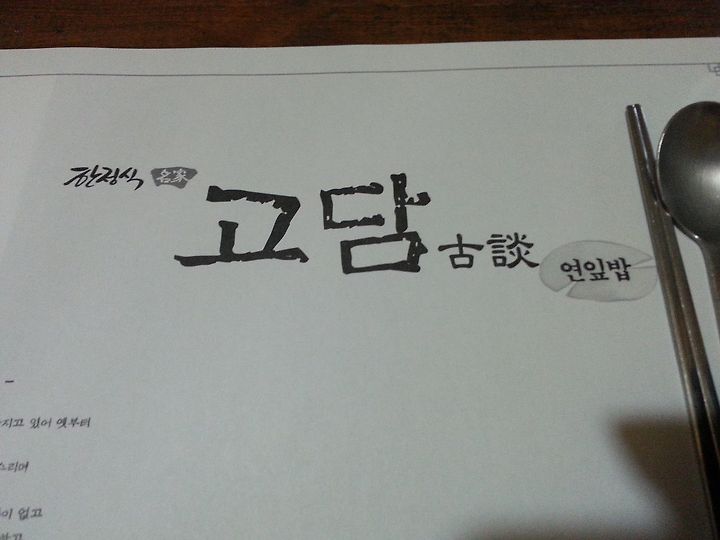 한정식 名家
고담 古談 연잎밥
지고 있어 옛부터
스리며
이 없고